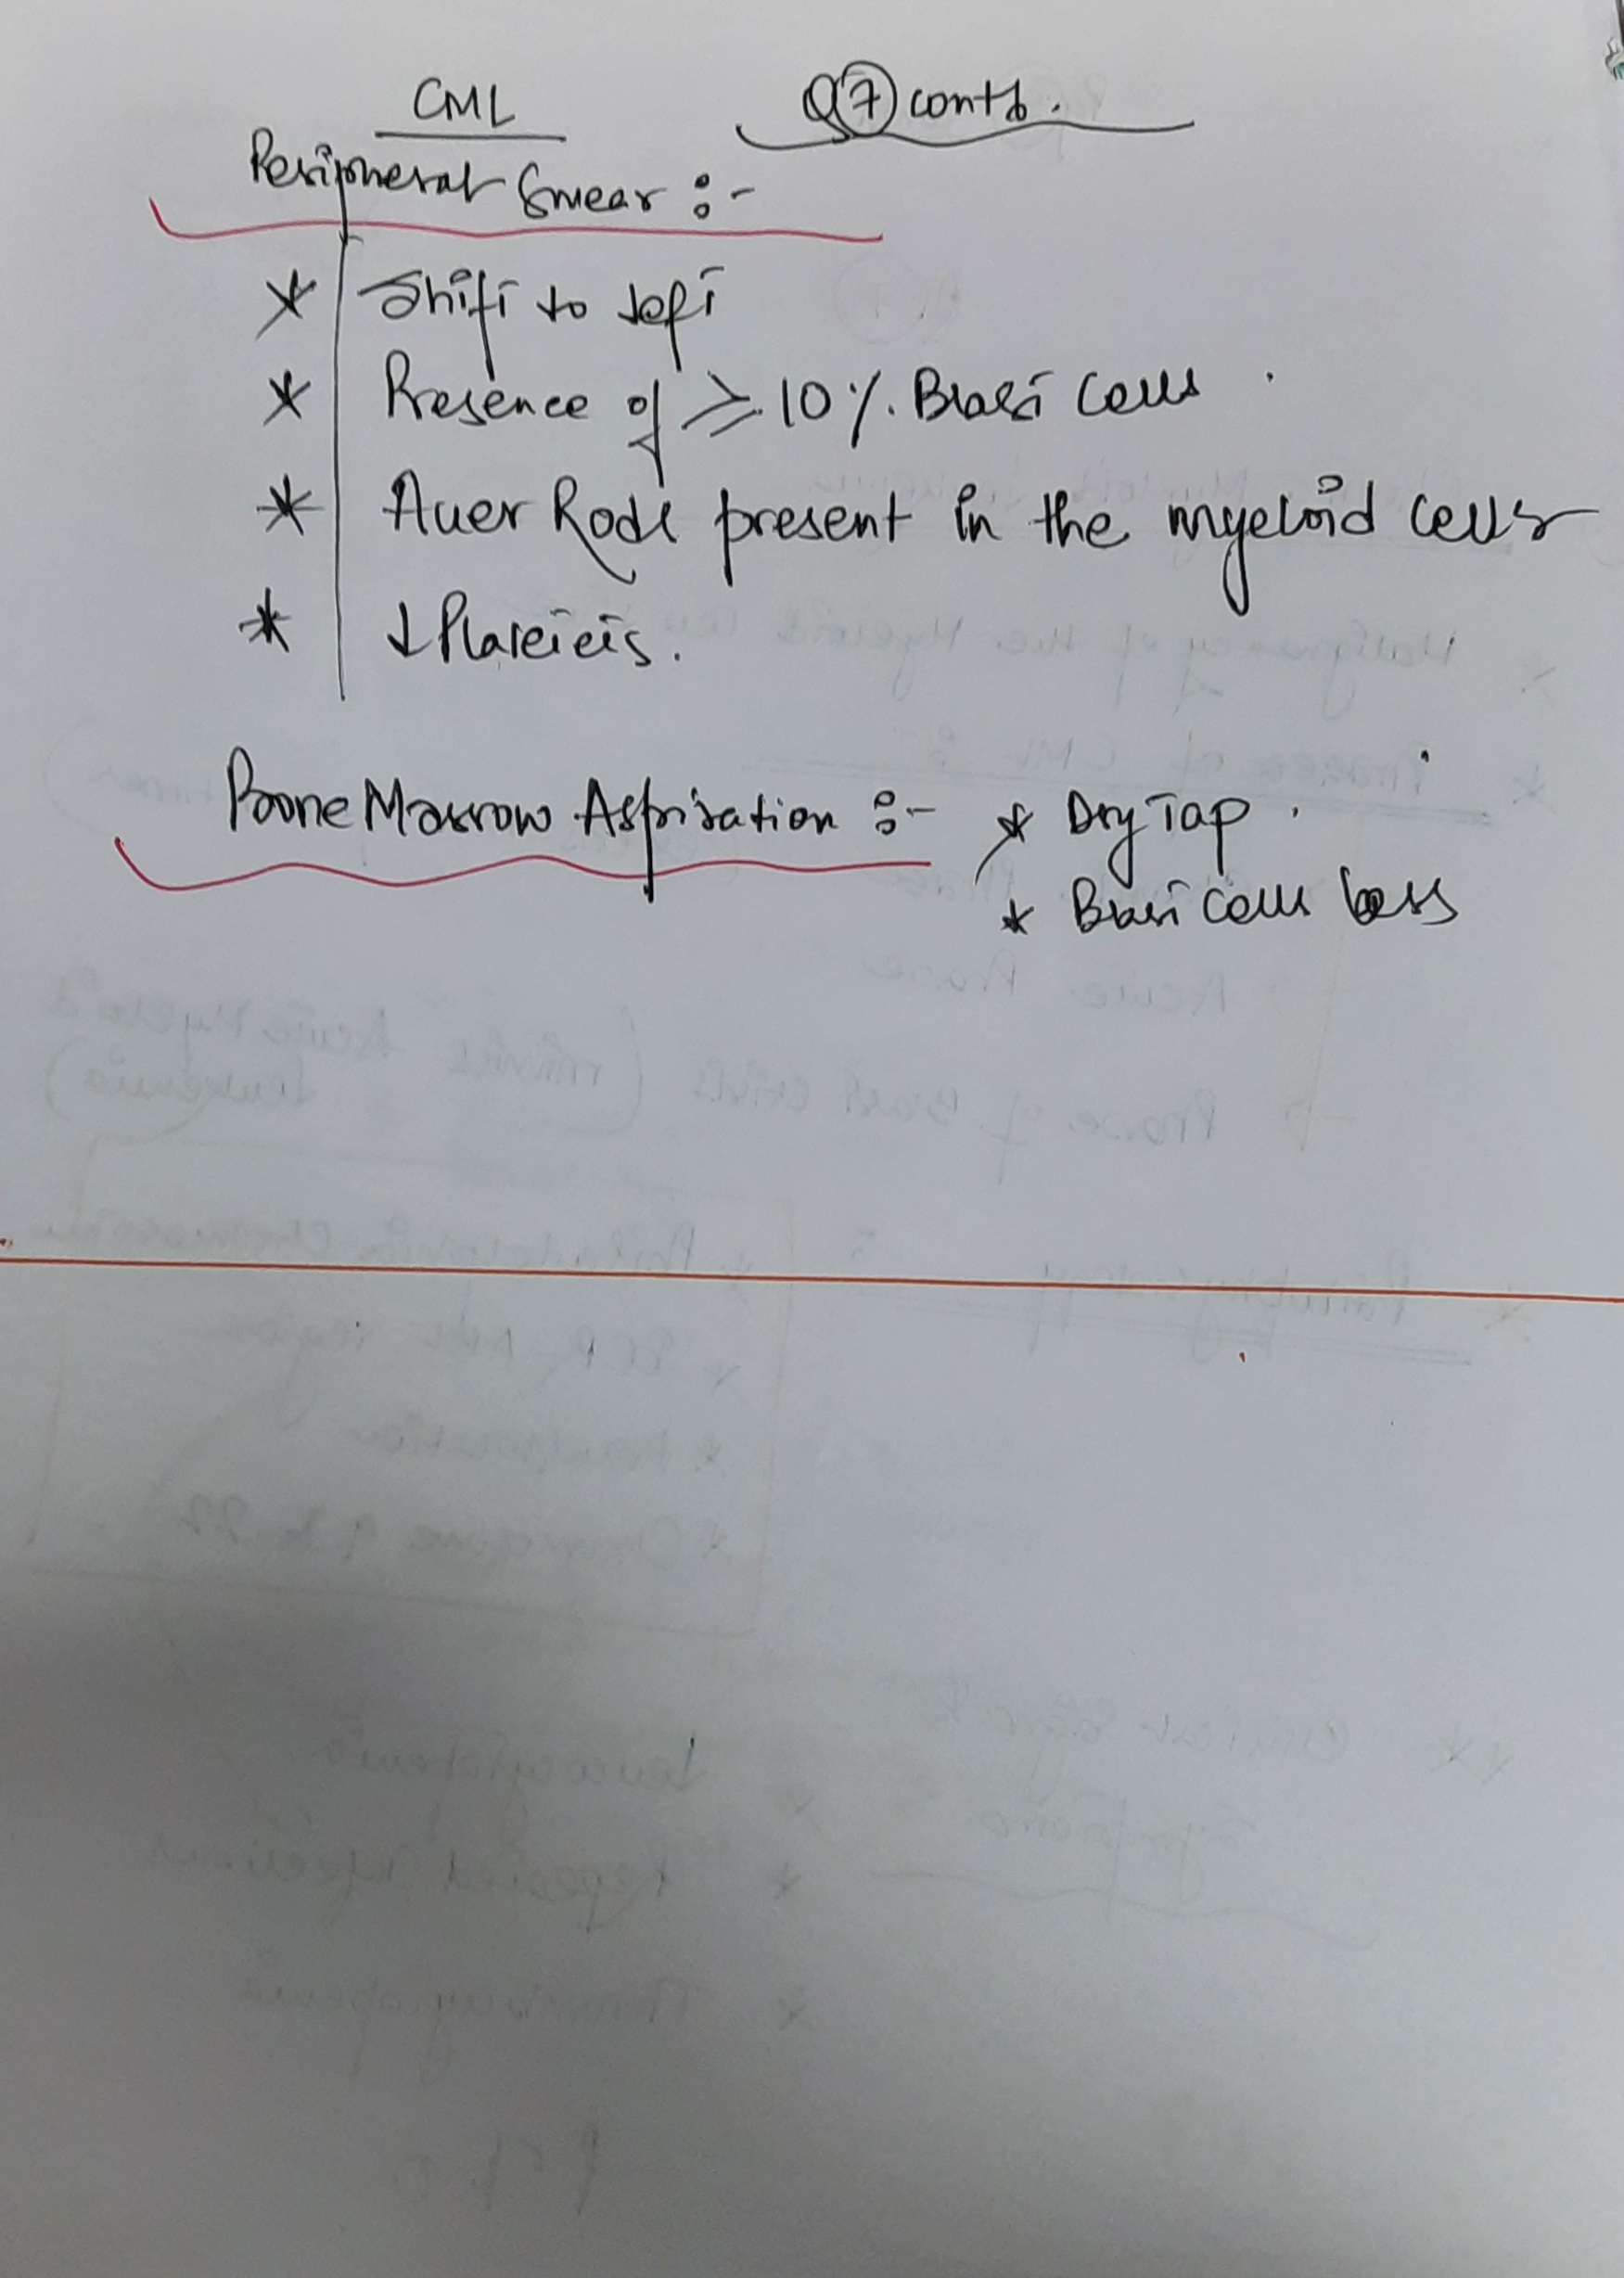 CML
Q7 contd.
Peripheral Smear :-
* Shift to left
* Presence of ≥ 10% Blast Cells.
* Auer Rods present in the myeloid cells
* ↓ Platelets.
Bone Marrow Aspiration :- * Dry Tap.
* Blast Cells less